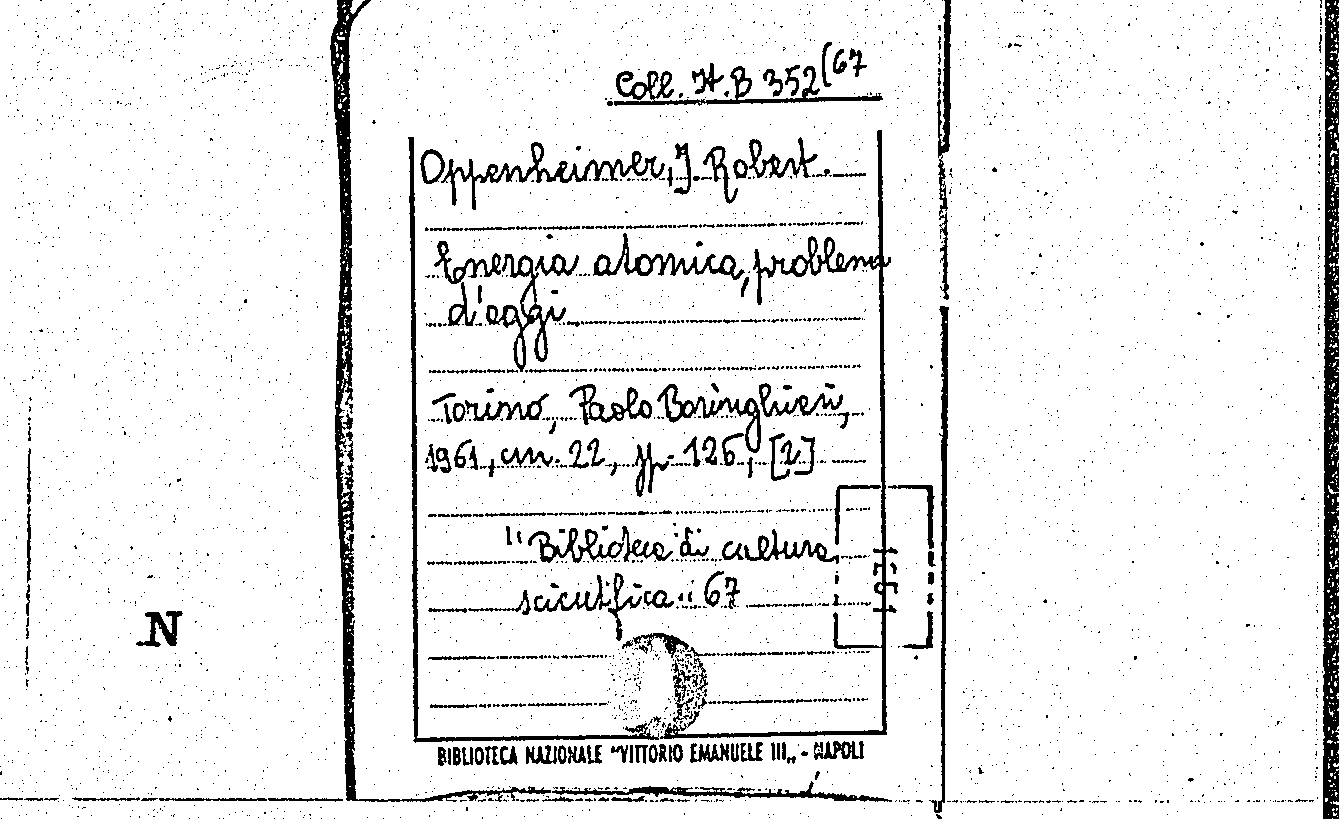 Coll. It. B 352(67
Oppenheimer, J. Robert.
Energia atomica, problema
d'oggi
Torino, Paolo Boringhieri,
1961, cm. 22, pp. 126, [2]
"Biblioteca di cultura
scientifica" 67
N
BIBLIOTECA NAZIONALE "VITTORIO EMANUELE III„ - NAPOLI